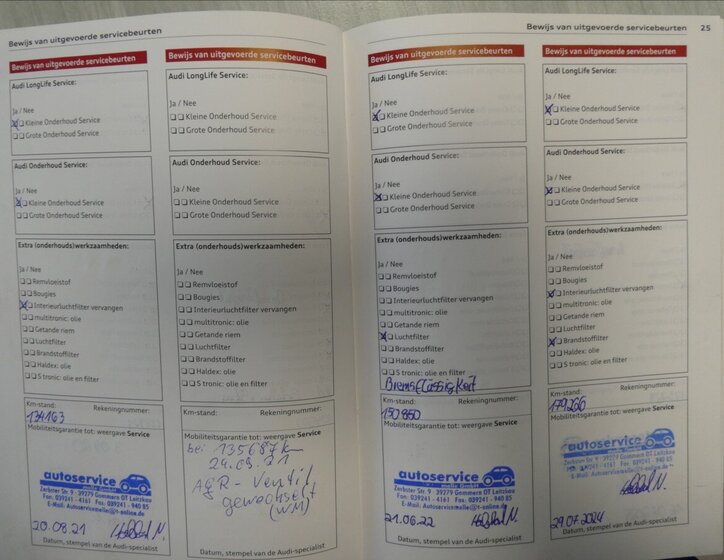 Bewijs van uitgevoerde servicebeurten
Bewijs van uitgevoerde servicebeurten
Audi LongLife Service:
Ja / Nee
Kleine Onderhoud Service
Grote Onderhoud Service
Audi Onderhoud Service:
Ja / Nee
Kleine Onderhoud Service
Grote Onderhoud Service
Extra (onderhouds)werkzaamheden:
Ja / Nee
Remvloeistof
Bougies
Interieurluchtfilter vervangen
multitronic: olie
Getande riem
Luchtfilter
Brandstoffilter
Haldex: olie
S tronic: olie en filter
Km-stand: Rekeningnummer:
134163
Mobiliteitsgarantie tot: weergave Service
autoservice
Zerbster Str. 9 · 39279 Gommern OT Leitzkau
Fon. 039241 - 4161 Fax. 039241 - 940 85
E-Mail: Autoservicemelle@t-online.de
20.08.21
Datum, stempel van de Audi-specialist
Bewijs van uitgevoerde servicebeurten
Audi LongLife Service:
Ja / Nee
Kleine Onderhoud Service
Grote Onderhoud Service
Audi Onderhoud Service:
Ja / Nee
Kleine Onderhoud Service
Grote Onderhoud Service
Extra (onderhouds)werkzaamheden:
Ja / Nee
Remvloeistof
Bougies
Interieurluchtfilter vervangen
multitronic: olie
Getande riem
Luchtfilter
Brandstoffilter
Haldex: olie
S tronic: olie en filter
Km-stand: Rekeningnummer:
Mobiliteitsgarantie tot: weergave Service
bei 135687 km
24.09.21
AGR-Ventil
gewechselt
Datum, stempel van de Audi-specialist
Bewijs van uitgevoerde servicebeurten 25
Bewijs van uitgevoerde servicebeurten
Audi LongLife Service:
Ja / Nee
Kleine Onderhoud Service
Grote Onderhoud Service
Audi Onderhoud Service:
Ja / Nee
Kleine Onderhoud Service
Grote Onderhoud Service
Extra (onderhouds)werkzaamheden:
Ja / Nee
Remvloeistof
Bougies
Interieurluchtfilter vervangen
multitronic: olie
Getande riem
Luchtfilter
Brandstoffilter
Haldex: olie
S tronic: olie en filter
Bremsflüssigkeit
Km-stand: Rekeningnummer:
150850
Mobiliteitsgarantie tot: weergave Service
autoservice
Zerbster Str. 9 · 39279 Gommern OT Leitzkau
Fon: 039241 - 4161 Fax: 039241 - 940 85
E-Mail: Autoservicemelle@t-online.de
21.06.22
Datum, stempel van de Audi-specialist
Bewijs van uitgevoerde servicebeurten
Audi LongLife Service:
Ja / Nee
Kleine Onderhoud Service
Grote Onderhoud Service
Audi Onderhoud Service:
Ja / Nee
Kleine Onderhoud Service
Grote Onderhoud Service
Extra (onderhouds)werkzaamheden:
Ja / Nee
Remvloeistof
Bougies
Interieurluchtfilter vervangen
multitronic: olie
Getande riem
Luchtfilter
Brandstoffilter
Haldex: olie
S tronic: olie en filter
Km-stand: Rekeningnummer:
179266
Mobiliteitsgarantie tot: weergave Service
autoservice
Zerbster Str. 9 · 39279 Gommern OT Leitzkau
29.07.2024
Datum, stempel van de Audi-specialist